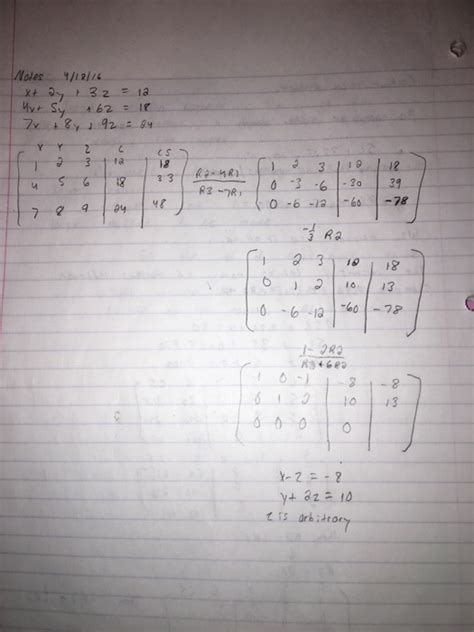 Notes 4/18/16
x + 2y + 3z = 12
4x + 5y + 6z = 18
7x + 8y + 9z = 24
x y z C CS
1 2 3 12 18
4 5 6 18 33
7 8 9 24 48
R2-4R1
R3-7R1
1 2 3 12 18
0 -3 -6 -30 39
0 -6 -12 -60 -78
-1/3 R2
1 2 3 12 18
0 1 2 10 13
0 -6 -12 -60 -78
1-2R2
R3+6R2
1 0 -1 -8 -8
0 1 2 10 13
0 0 0 0
x-z = -8
y+2z = 10
z is arbitrary